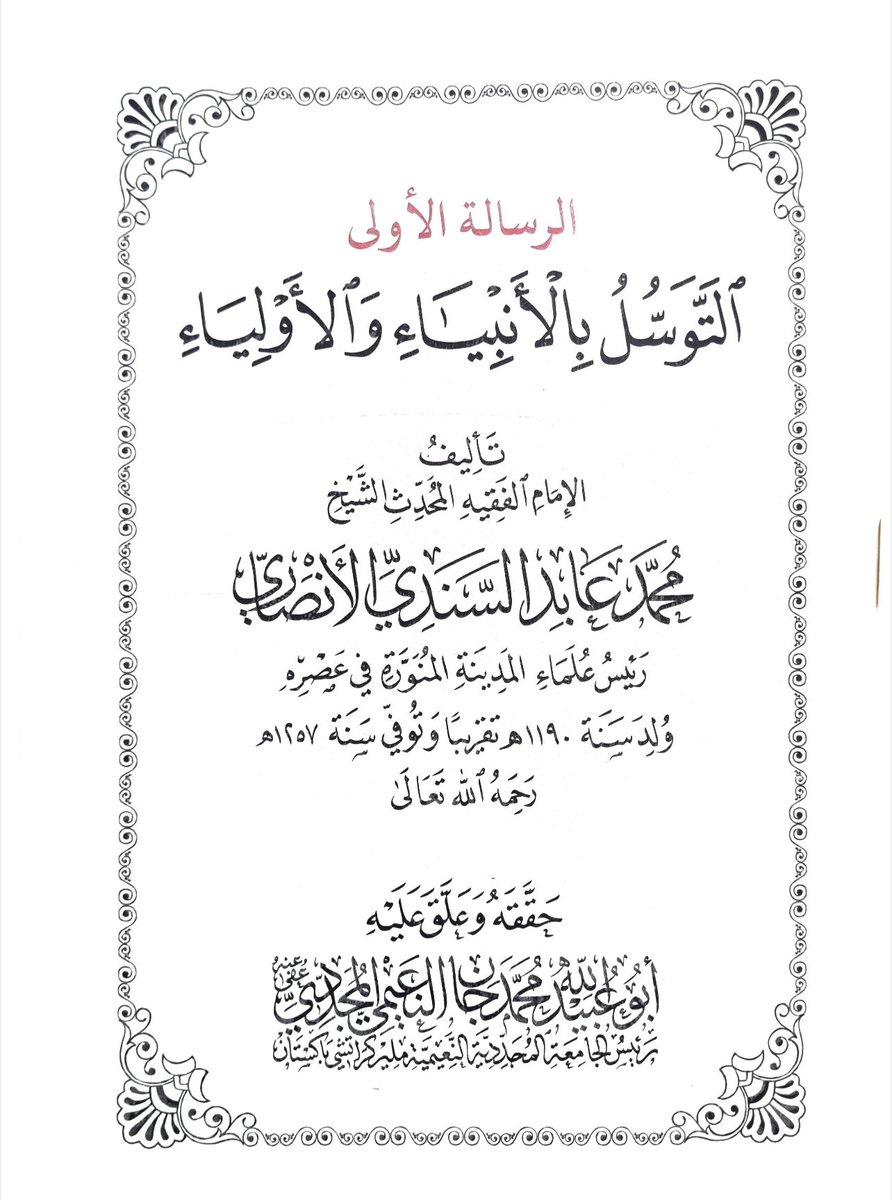 الرسالة الأولى
ٱلتَّوَسُّلُ بِٱلْأَنْبِيَاءِ وَٱلْأَوْلِيَاءِ
تَأليفُ
الإِمَامِ ٱلفَقِيهِ المُحَدِّثِ الشَّيْخِ
مُحَمَّد عَابِد السَّنَدِيِّ الأَنْصَارِيّ
رَئِيسُ عُلَمَاءِ المَدِينَةِ المُنَوَّرَةِ فِي عَصْرِهِ
وُلِدَ سَنَة ١١٩٠ هـ تقريبًا وَتُوفِّيَ سَنَة ١٢٥٧ هـ
رَحِمَهُ ٱللّٰه تَعَالَى
حَقَّقَهُ وَعَلَّقَ عَلَيْهِ
أبُو عُبَيْد اللّٰه مُحَمَّد جَان النَّاعِيمِي المُجَدِّدِيّ عُفِيَ عَنْهُ
رَئِيسُ الجَامِعَةِ المُجَدِّدِيَّةِ النَّعِيمِيَّةِ مَلِير كَرَاتشِي بَاكِسْتَان